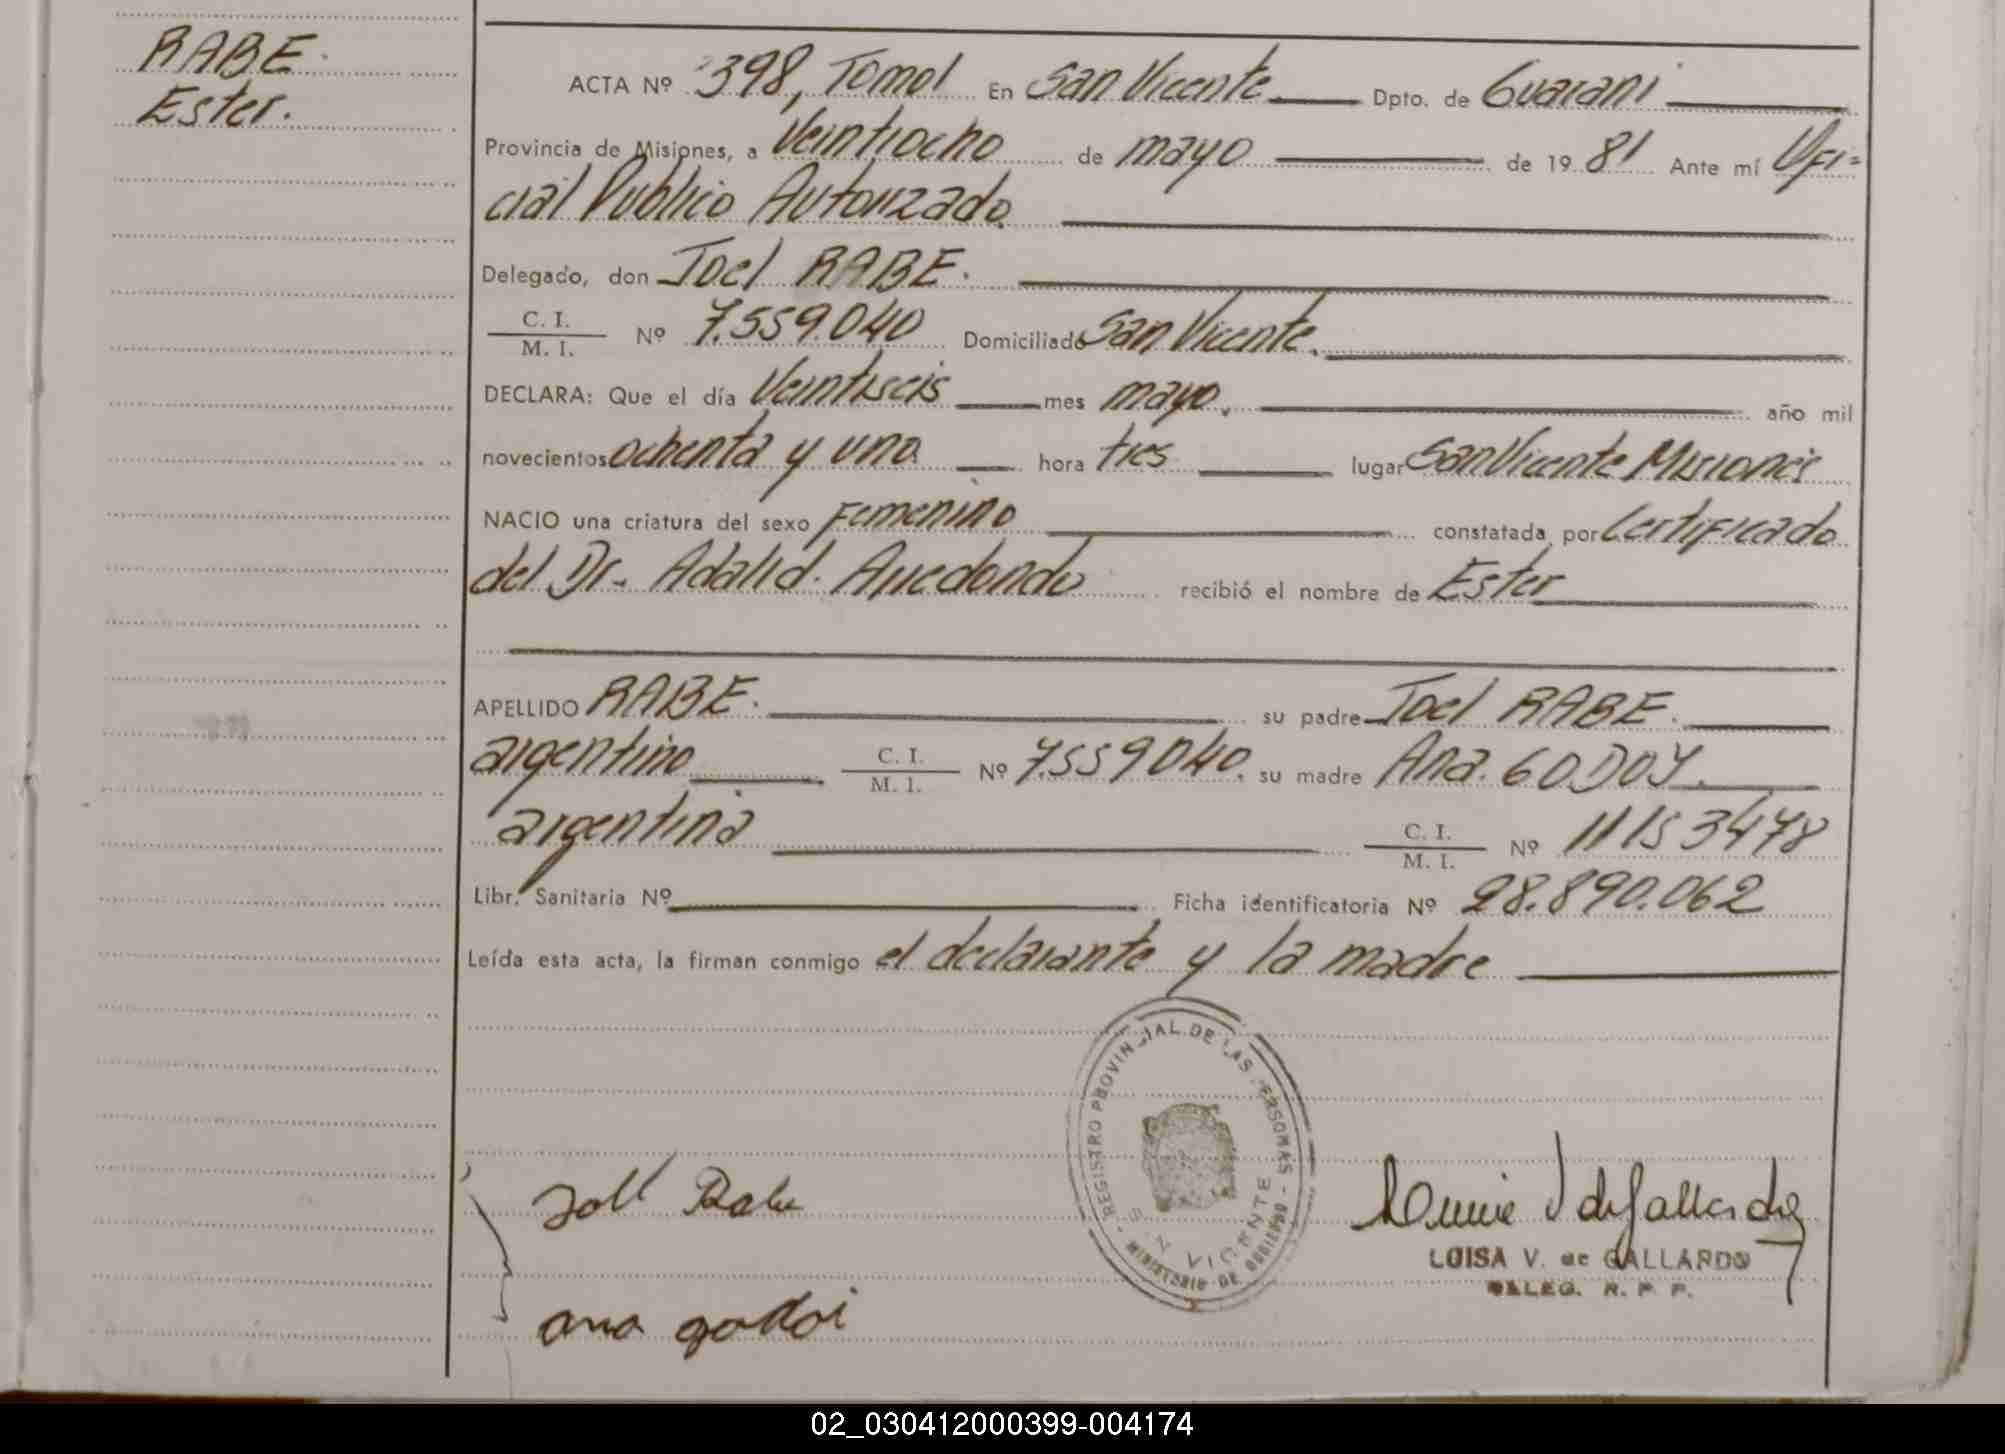 RABE.
Ester.
ACTA Nº 398, Tomo I En San Vicente Dpto. de Guarani
Provincia de Misiones, a Veintiocho de mayo de 19 81 Ante mí Ofi=
cial Publico Autorizado.
Delegado, don Joel RABE.
C. I.
M. I. Nº 7.559.040 Domiciliado San Vicente.
DECLARA: Que el día Veintiseis mes mayo. año mil
novecientos ochenta y uno hora tres lugar San Vicente Misiones
NACIO una criatura del sexo Femenino constatada por Certificado
del Dr. Adalid. Arredondo recibió el nombre de Ester
APELLIDO RABE. su padre Joel RABE.
argentino C. I.
M. I. Nº 7.559040. su madre Ana. GODOY.
argentina C. I.
M. I. Nº 11153478
Libr. Sanitaria Nº Ficha identificatoria Nº 28.890.062
Leída esta acta, la firman conmigo el declarante y la madre
REGISTRO PROVINCIAL DE LAS PERSONAS - MINISTERIO DE GOBIERNO -
SAN VICENTE
Joel Rabe
ana godoi
LUISA V. de GALLARDO
DELEG. R. P. P.
02_030412000399-004174